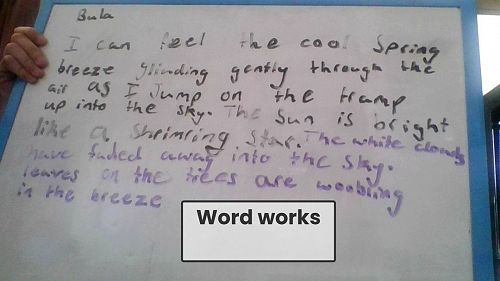 Bula
I can feel the cool Spring
breeze glinding gently through the
air as I Jump on the tramp
up into the sky. The Sun is bright
like a Shrimring Star. The white clouds
have faded away into the sky.
leaves on the trees are woobling
in the breeze
Word works